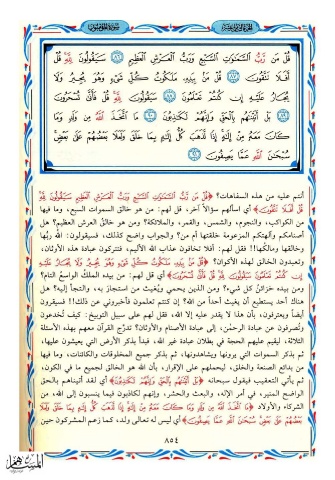 قُلْ مَن رَّبُّ السَّمَٰوَٰتِ السَّبْعِ وَرَبُّ الْعَرْشِ الْعَظِيمِ ٨٦ سَيَقُولُونَ لِلَّهِ قُلْ
أَفَلَا تَتَّقُونَ ٨٧ قُلْ مَن بِيَدِهِ مَلَكُوتُ كُلِّ شَيْءٍ وَهُوَ يُجِيرُ وَلَا
يُجَارُ عَلَيْهِ إِن كُنتُمْ تَعْلَمُونَ ٨٨ سَيَقُولُونَ لِلَّهِ قُلْ فَأَنَّىٰ تُسْحَرُونَ
٨٩ بَلْ أَتَيْنَٰهُم بِالْحَقِّ وَإِنَّهُمْ لَكَٰذِبُونَ ٩٠ مَا اتَّخَذَ اللَّهُ مِن وَلَدٍ وَمَا
كَانَ مَعَهُ مِنْ إِلَٰهٍ إِذًا لَّذَهَبَ كُلُّ إِلَٰهٍ بِمَا خَلَقَ وَلَعَلَا بَعْضُهُمْ عَلَىٰ بَعْضٍ
سُبْحَٰنَ اللَّهِ عَمَّا يَصِفُونَ ٩١
أنتم عليه من هذه السفاهات؟ ﴿قُلْ مَن رَّبُّ السَّمَٰوَٰتِ السَّبْعِ وَرَبُّ الْعَرْشِ الْعَظِيمِ سَيَقُولُونَ لِلَّهِ
قُلْ أَفَلَا تَتَّقُونَ﴾ أي اسألهم سؤالاً آخر، قل لهم: من هو خالق السموات السبع، وما فيها
من الكواكب، والنجوم، والشمس، والقمر، والملائكة؟ ومن هو خالق العرش العظيم؟ هل
أصنامكم وآلهتكم المزعومة خلقتها أم من؟ والجواب واضح كذلك، فسيقولون: الله ربُّها
وخالقها ومالكُها!! فقل لهم: أفلا تخافون عذاب الله الأليم، فتتركون عبادة هذه الأوثان،
وتعبدون الخالق لهذه الأكوان؟ ﴿قُلْ مَن بِيَدِهِ مَلَكُوتُ كُلِّ شَيْءٍ وَهُوَ يُجِيرُ وَلَا يُجَارُ عَلَيْهِ
إِن كُنتُمْ تَعْلَمُونَ سَيَقُولُونَ لِلَّهِ قُلْ فَأَنَّىٰ تُسْحَرُونَ﴾ أي قل لهم: من بيده الملكُ الواسع التام؟
ومن بيده خزائن كل شيء؟ ومن الذين يحمي ويُغيث من استجار به، والتجأ إليه؟ هل
هناك أحد يستطيع أن يغيث أحداً من الله؟ إن كنتم تعلمون فأخبروني عن ذلك!! فسيقرون
أيضاً ويعترفون، بأن هذا لا يقدر عليه إلا الله، فقل لهم على سبيل التوبيخ: كيف تُخدعون
وتُصرفون عن عبادة الرحمٰن، إلى عبادة الأصنام والأوثان؟ تدرَّج القرآن معهم بهذه الأسئلة
الثلاثة، ليقيم عليهم الحجة في بطلان عبادة غير الله، فبدأ بذكر الأرض التي يعيشون عليها،
ثم بذكر السموات التي يرونها ويشاهدونها، ثم بذكر جميع المخلوقات والكائنات، وما فيها
من بدائع الصنعة والخلق، ليحملهم على الإقرار، بأن الله هو الخالق لجميع ما في الكون،
ثم يأتي التعقيب فيقول سبحانه ﴿بَلْ أَتَيْنَٰهُم بِالْحَقِّ وَإِنَّهُمْ لَكَٰذِبُونَ﴾ أي لقد أتيناهم بالحق
الواضح المنير، في أمر الإله، والبعث والحشر، وإنهم لكاذبون فيما ينسبون إلى الله، من
الشركاء والأولاد ﴿مَا اتَّخَذَ اللَّهُ مِن وَلَدٍ وَمَا كَانَ مَعَهُ مِنْ إِلَٰهٍ إِذًا لَّذَهَبَ كُلُّ إِلَٰهٍ بِمَا خَلَقَ وَلَعَلَا
بَعْضُهُمْ عَلَىٰ بَعْضٍ سُبْحَٰنَ اللَّهِ عَمَّا يَصِفُونَ﴾ أي ليس له تعالى ولد، كما زعم المشركون حين
٨٥٤